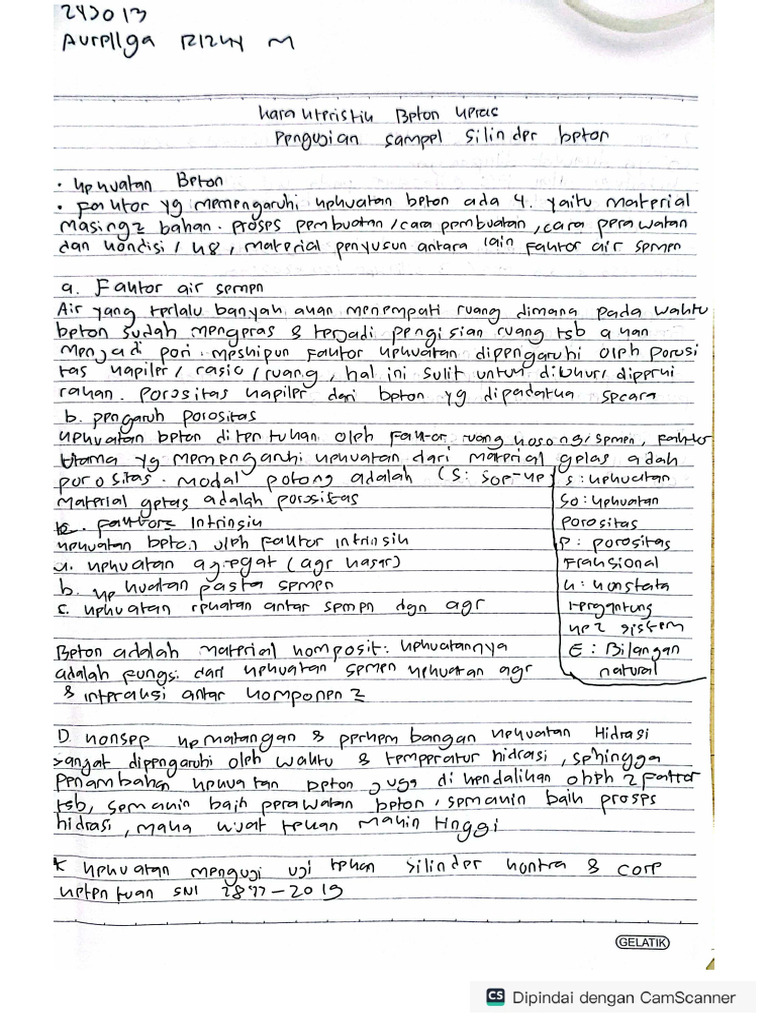 243013
Aurellga Rizky M
Karakteristik Beton Keras
Pengujian sampel Silinder beton
• kekuatan Beton
• Faktor yg memengaruhi kekuatan beton ada 4. yaitu material
masing2 bahan. Proses pembuatan / cara pembuatan, cara perawatan
dan kondisi / material penyusun antara lain Faktor air semen
a. Faktor air semen
Air yang terlalu banyak akan menempati ruang dimana pada waktu
beton sudah mengeras & terjadi pengisian ruang tsb akan
menjadi pori. meskipun faktor kekuatan dipengaruhi oleh porosi
tas kapiler / rasio / ruang, hal ini sulit untuk diukur / diperki
rakan. Porositas kapiler dari beton yg dipadatka secara
b. pengaruh porositas
kekuatan beton ditentukan oleh faktor ruang kosong / semen, faktor
Utama yg memengaruhi kekuatan dari material gelas adah
porositas. modal potong adalah (S: Soe-kp)
material getas adalah porositas
c. faktor2 Intrinsik
kekuatan beton oleh faktor intrinsik
a. kekuatan agregat (agr kasar)
b. kekuatan pasta semen
c. kekuatan rekatan antar semen dgn agr
S : kekuatan
So : kekuatan
porositas
P : porositas
Fraksional
k : konstata
tergantung
ke2 sistem
E : Bilangan
natural
Beton adalah material komposit : kekuatannya
adalah fungsi dari kekuatan semen kekuatan agr
& interaksi antar komponen2
D. konsep kematangan & perkembangan kekuatan Hidrasi
sangat dipengaruhi oleh waktu & temperatur hidrasi, sehingga
penambahan kekuatan beton juga di kendalikan oleh 2 faktor
tsb, semakin baik perawatan beton, semakin baik proses
hidrasi, maka kuat tekan makin tinggi
K kekuatan menguji uji tekan silinder kontra & core
ketentuan SNI 2847-2019
GELATIK
CS Dipindai dengan CamScanner